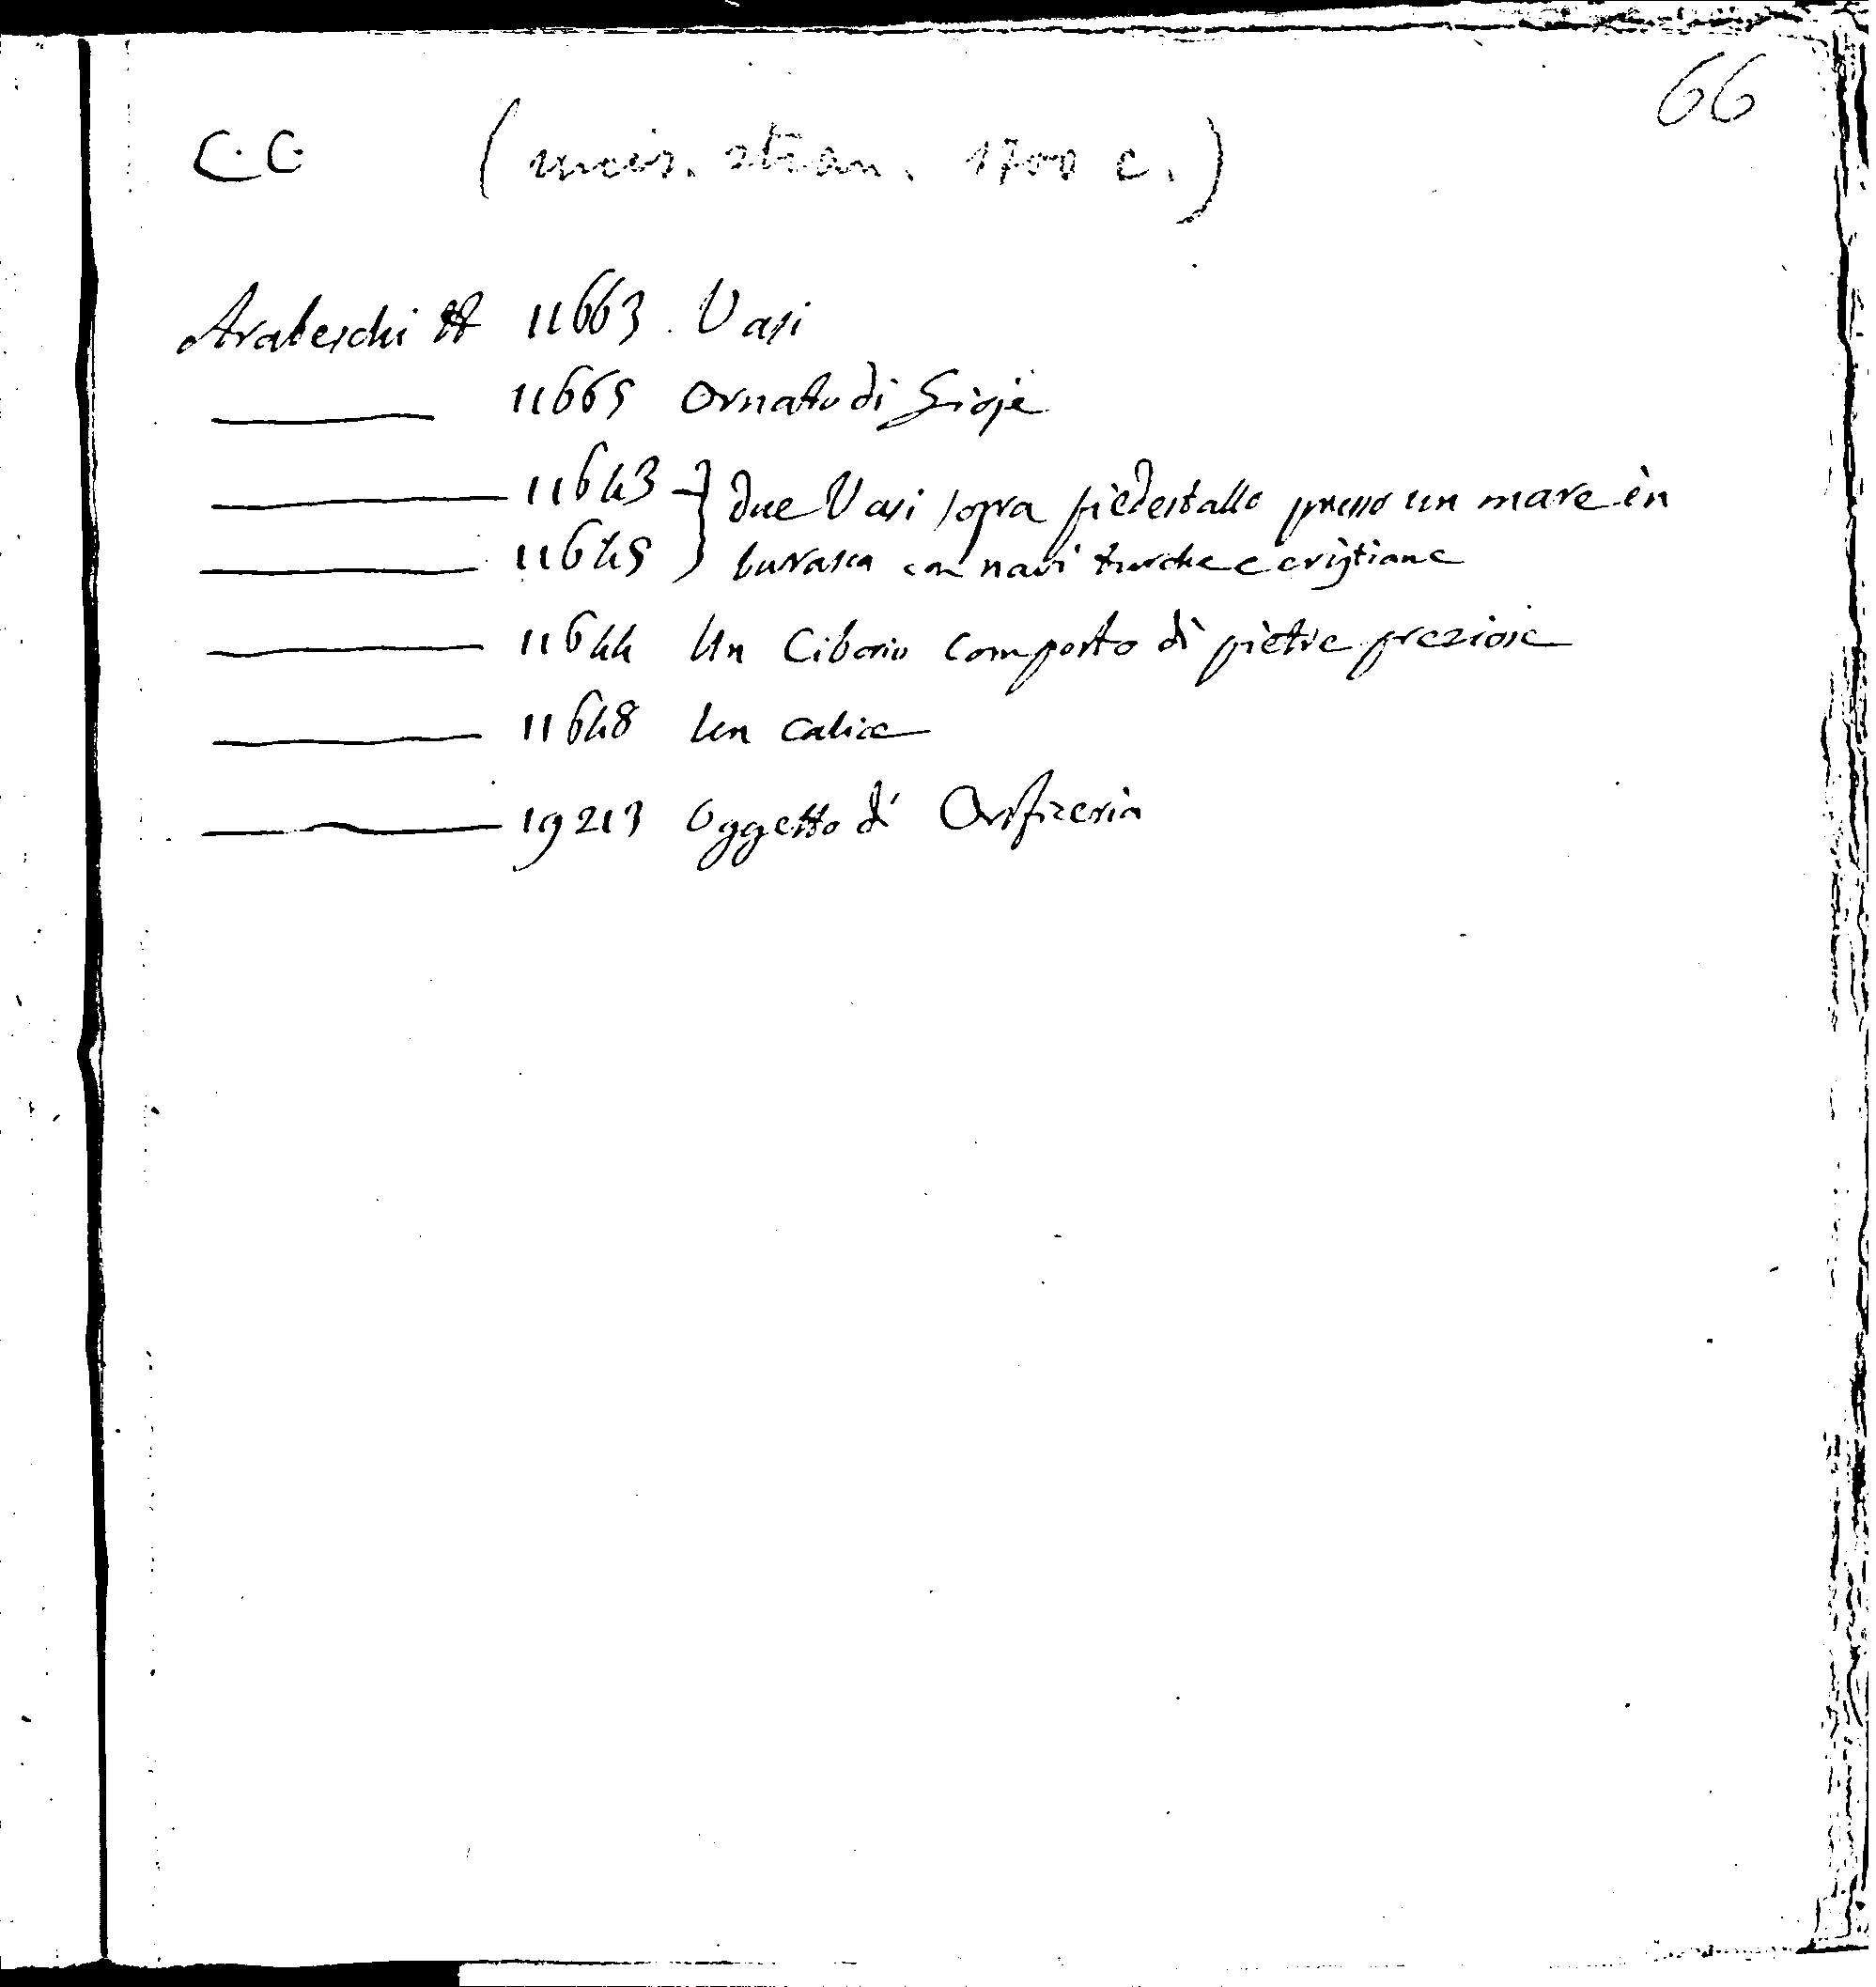 66
C.C. (incis. stran. 1700 c.)
Arabeschi 11663 Vasi
11665 Ornato di Gioje
11643 } due Vasi sopra piedestallo presso un mare in
11645 burasca con navi turche e cristiane
11644 Un Ciborio composto di pietre preziose
11648 Un calice
19213 Oggetto di Orificeria